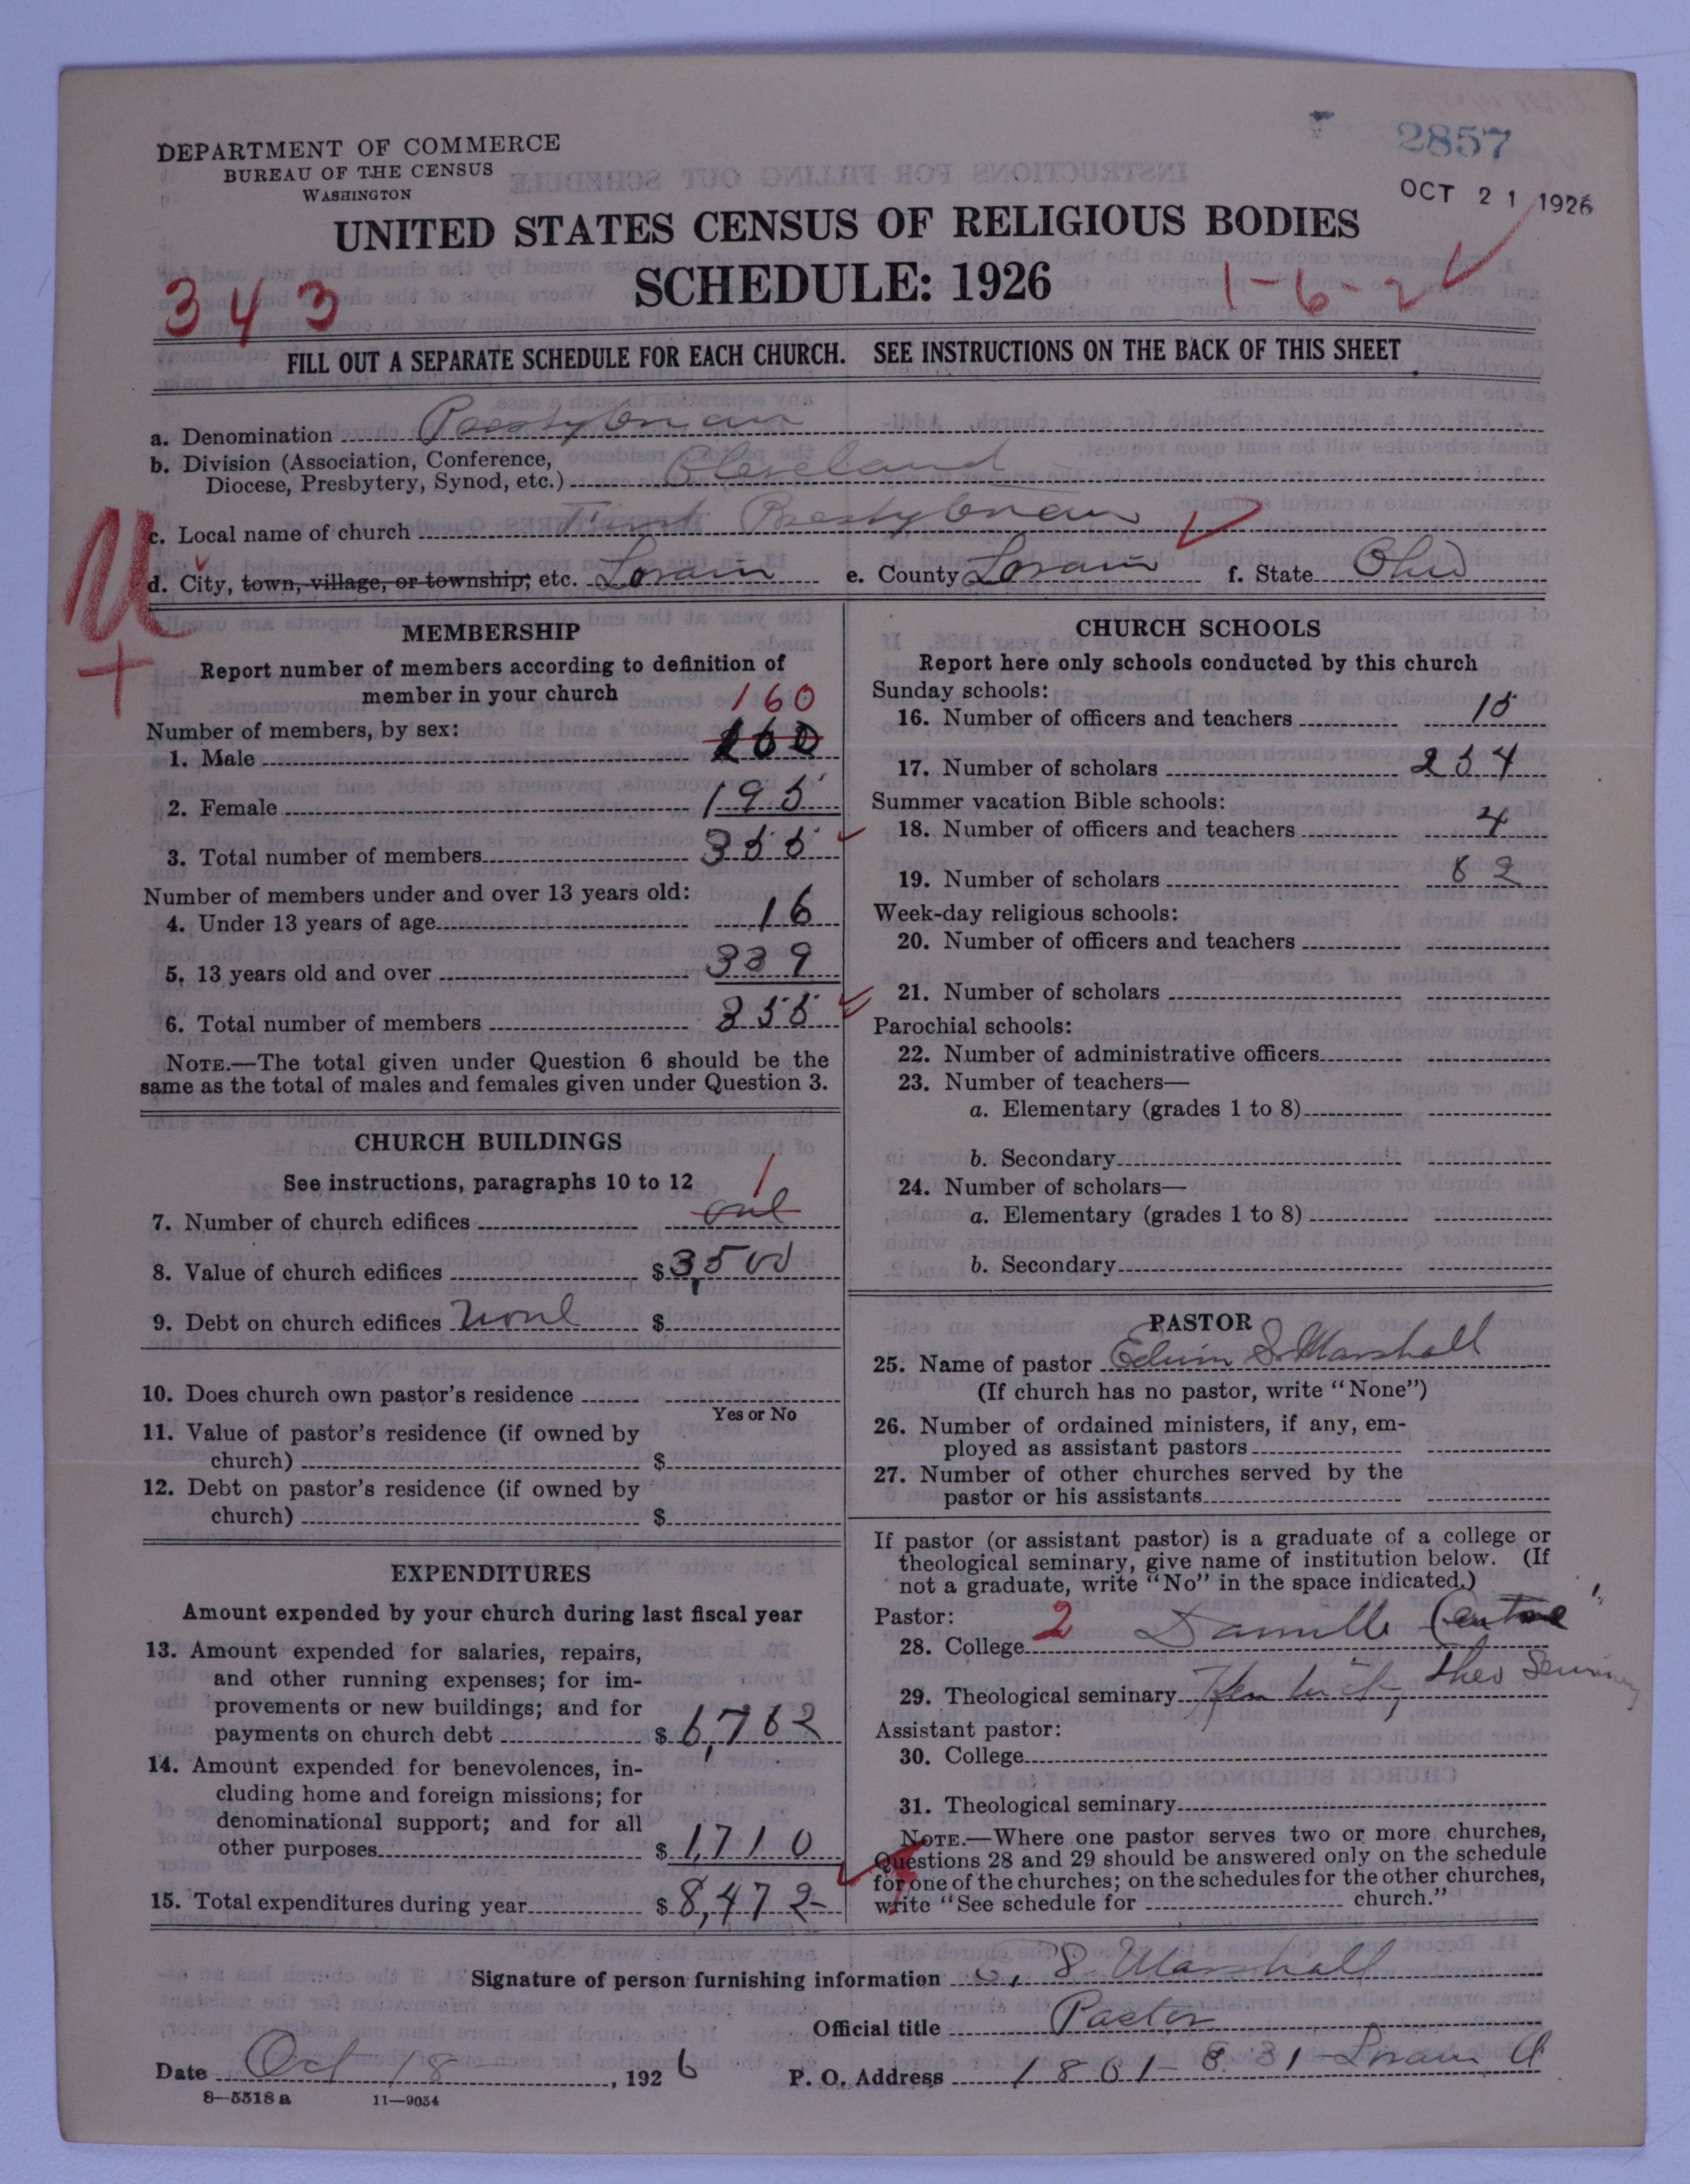 2857
OCT 21 1926
DEPARTMENT OF COMMERCE
BUREAU OF THE CENSUS
WASHINGTON
UNITED STATES CENSUS OF RELIGIOUS BODIES
SCHEDULE: 1926
343
1-6-2
FILL OUT A SEPARATE SCHEDULE FOR EACH CHURCH. SEE INSTRUCTIONS ON THE BACK OF THIS SHEET
a. Denomination Presbyterian
b. Division (Association, Conference,
Diocese, Presbytery, Synod, etc.) Cleveland
c. Local name of church First Presbyterian
d. City, town, village, or township, etc. Lorain e. County Lorain f. State Ohio
MEMBERSHIP
Report number of members according to definition of
member in your church
160
Number of members, by sex:
1. Male 160
2. Female 195
3. Total number of members 355
Number of members under and over 13 years old:
4. Under 13 years of age 16
5. 13 years old and over 339
6. Total number of members 355
NOTE.—The total given under Question 6 should be the
same as the total of males and females given under Question 3.
CHURCH BUILDINGS
See instructions, paragraphs 10 to 12
1
7. Number of church edifices one
8. Value of church edifices $3,500
9. Debt on church edifices None $
10. Does church own pastor's residence
Yes or No
11. Value of pastor's residence (if owned by
church) $
12. Debt on pastor's residence (if owned by
church) $
EXPENDITURES
Amount expended by your church during last fiscal year
13. Amount expended for salaries, repairs,
and other running expenses; for im-
provements or new buildings; and for
payments on church debt $6,762
14. Amount expended for benevolences, in-
cluding home and foreign missions; for
denominational support; and for all
other purposes $1,710
15. Total expenditures during year $8,472
CHURCH SCHOOLS
Report here only schools conducted by this church
Sunday schools:
16. Number of officers and teachers 15
17. Number of scholars 254
Summer vacation Bible schools:
18. Number of officers and teachers 4
19. Number of scholars
Week-day religious schools:
20. Number of officers and teachers
21. Number of scholars
Parochial schools:
22. Number of administrative officers
23. Number of teachers—
a. Elementary (grades 1 to 8)
b. Secondary
24. Number of scholars—
a. Elementary (grades 1 to 8)
b. Secondary
PASTOR
25. Name of pastor Edwin S. Marshall
(If church has no pastor, write "None")
26. Number of ordained ministers, if any, em-
ployed as assistant pastors
27. Number of other churches served by the
pastor or his assistants
If pastor (or assistant pastor) is a graduate of a college or
theological seminary, give name of institution below. (If
not a graduate, write "No" in the space indicated.)
Pastor:
28. College 2 Danville Centre
29. Theological seminary Kentucky Theo Seminary
Assistant pastor:
30. College
31. Theological seminary
NOTE.—Where one pastor serves two or more churches,
Questions 28 and 29 should be answered only on the schedule
for one of the churches; on the schedules for the other churches,
write "See schedule for church."
Signature of person furnishing information E. S. Marshall
Official title Pastor
Date Oct 18, 1926 P. O. Address 1801- Lorain O
8—5518a 11—9054